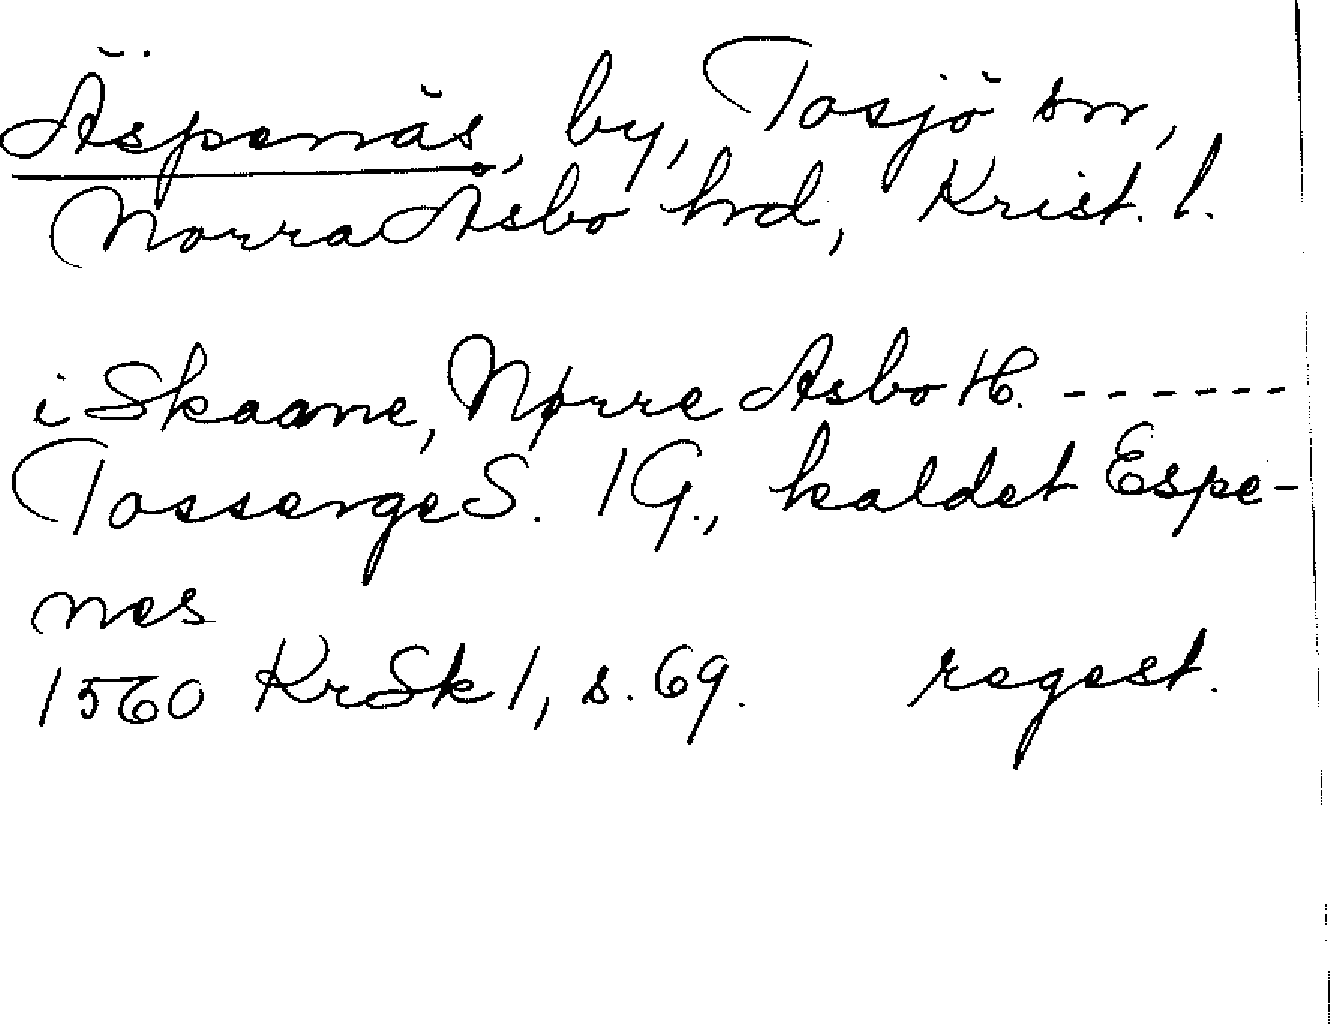 Äspenäs, by, Tosjö sn,
Norra Åsbo hrd, Krist. l.
i Skaane, Nørre Asbo H. ------
Tosserge S. 1 G., kaldet Espe-
nes
1560 KrSk 1, s. 69. regest.